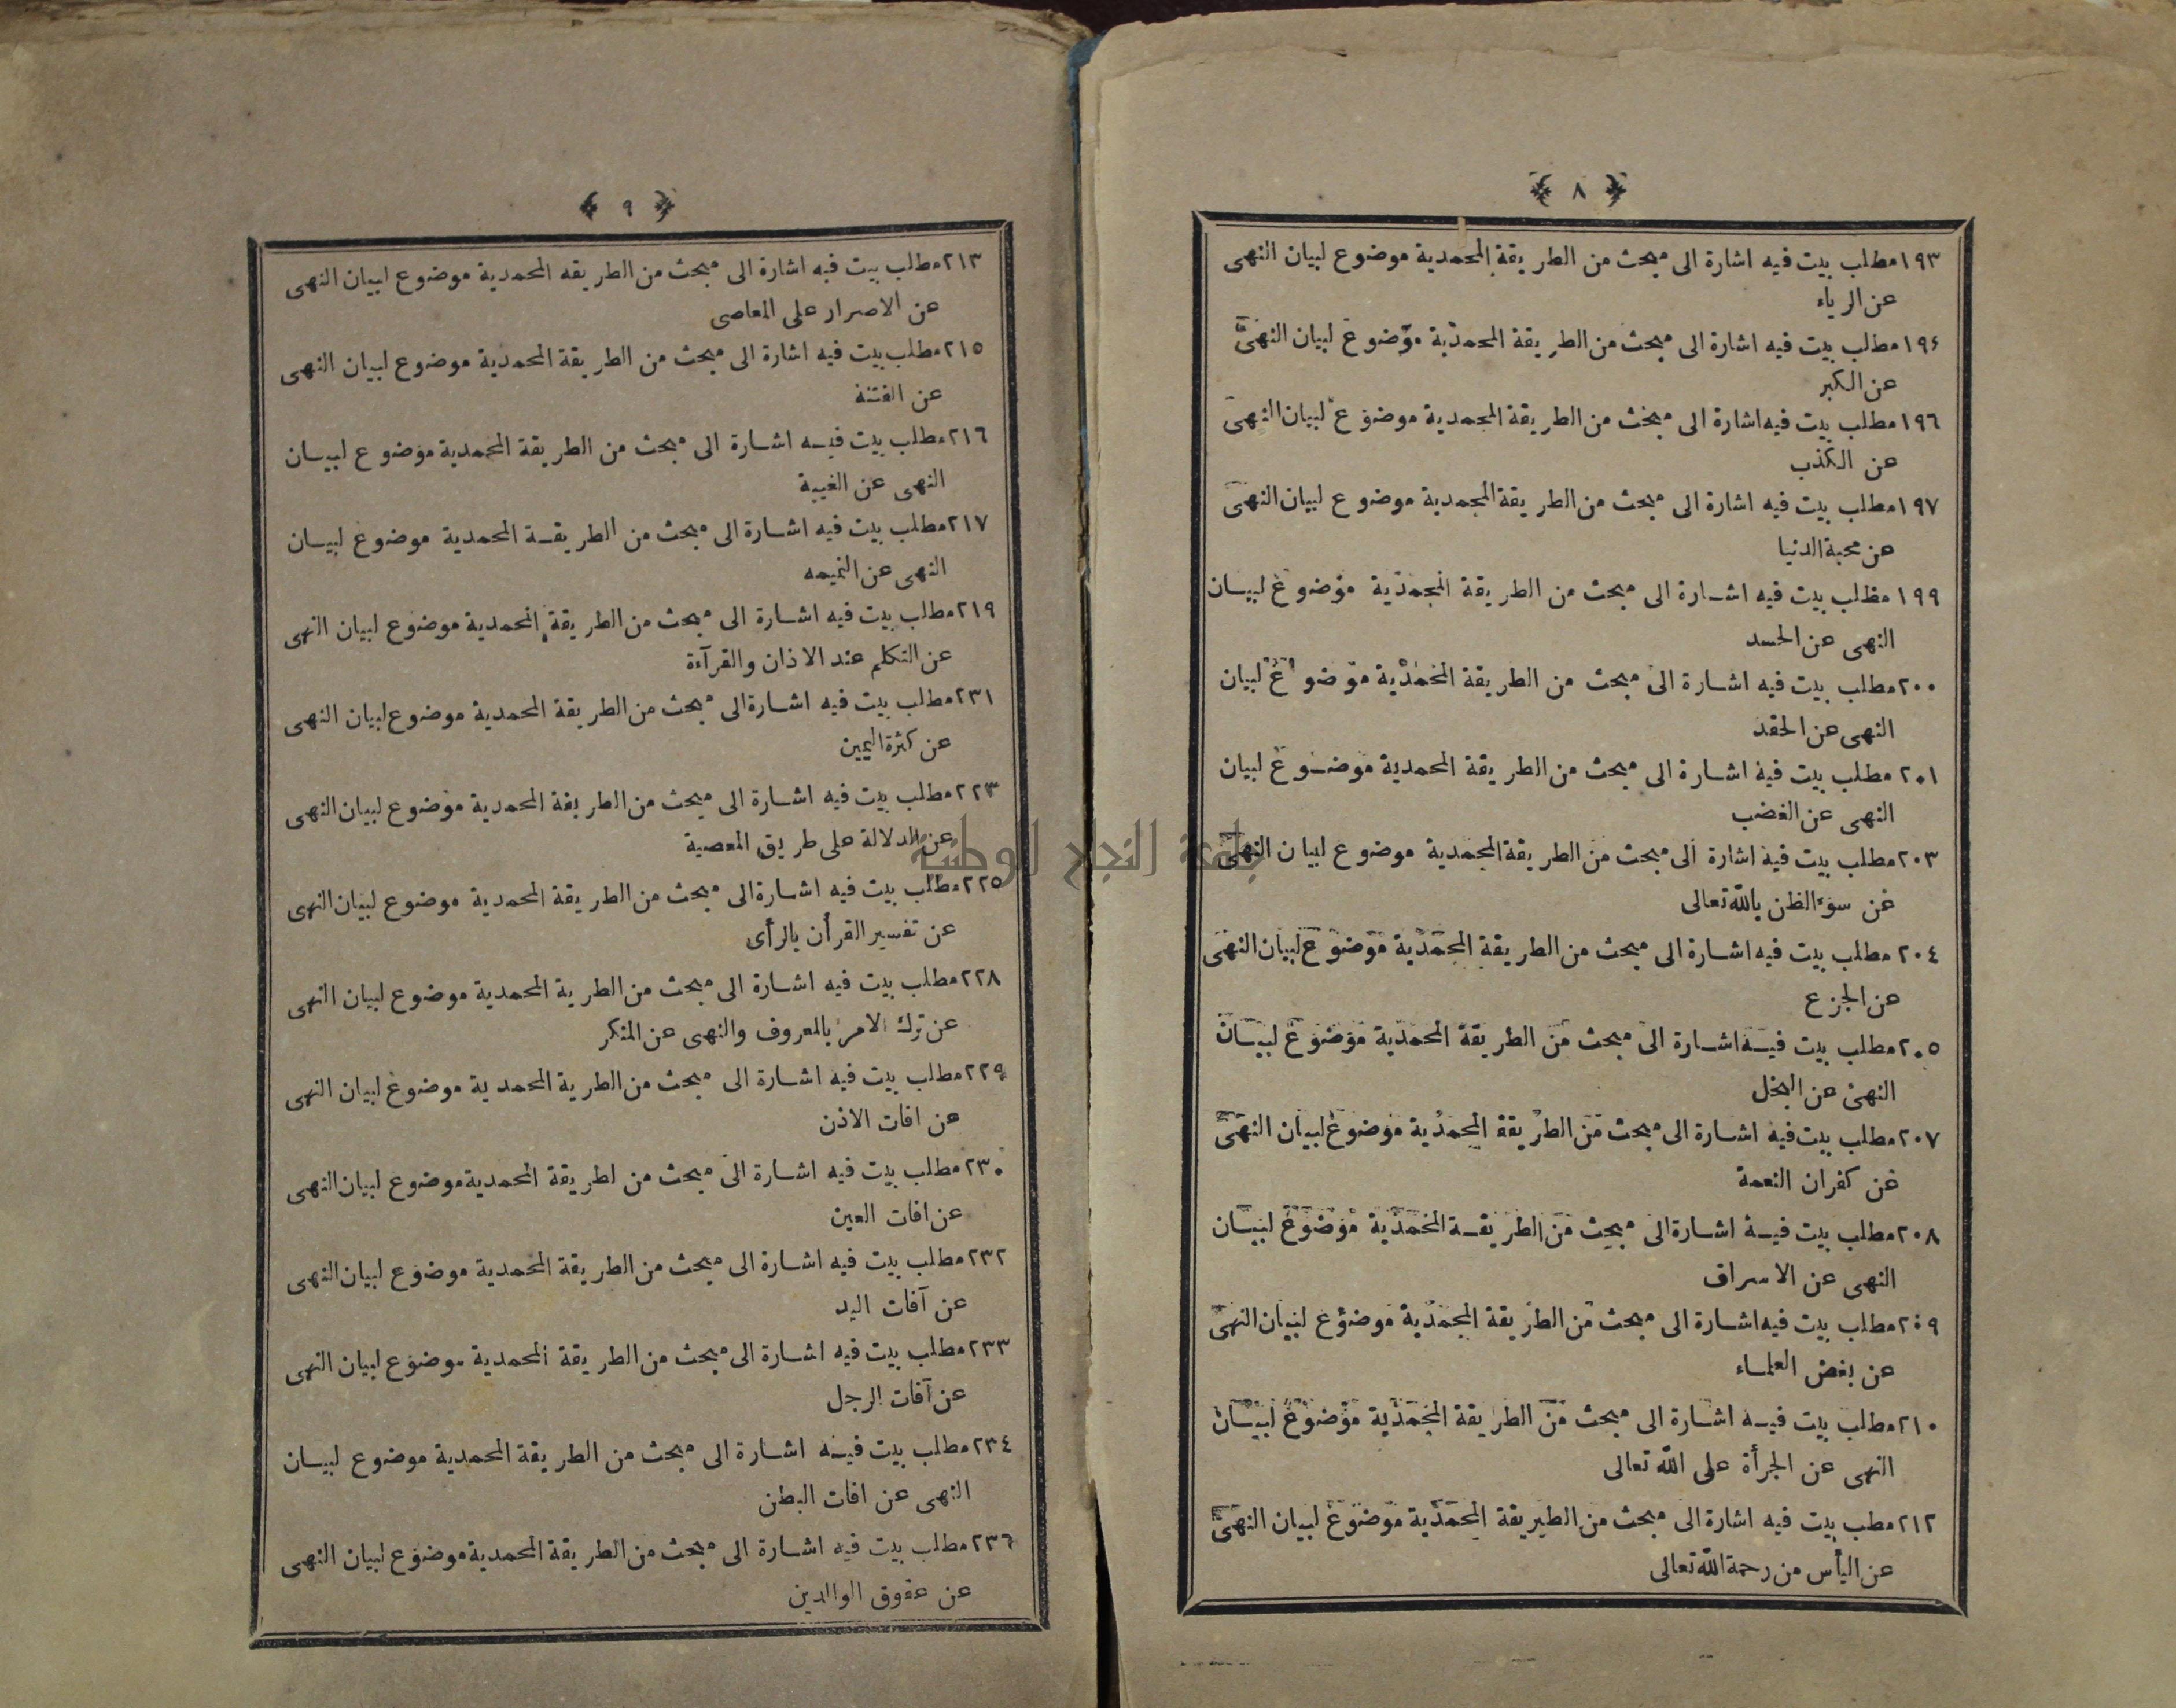 ﴿ ٨ ﴾
١٩٣ مطلب بيت فيه اشارة الى مبحث من الطريقة المحمدية موضوع لبيان النهى
عن الرياء
١٩٤ مطلب بيت فيه اشارة الى مبحث من الطريقة المحمدية موضوع لبيان النهى
عن الكبر
١٩٦ مطلب بيت فيه اشارة الى مبحث من الطريقة المحمدية موضوع لبيان النهى
عن الكذب
١٩٧ مطلب بيت فيه اشارة الى مبحث من الطريقة المحمدية موضوع لبيان النهى
عن محبة الدنيا
١٩٩ مطلب بيت فيه اشارة الى مبحث من الطريقة المحمدية موضوع لبيان
النهى عن الحسد
٢٠٠ مطلب بيت فيه اشارة الى مبحث من الطريقة المحمدية موضوع لبيان
النهى عن الحقد
٢٠١ مطلب بيت فيه اشارة الى مبحث من الطريقة المحمدية موضوع لبيان
النهى عن الغضب
٢٠٣ مطلب بيت فيه اشارة الى مبحث من الطريقة المحمدية موضوع لبيان النهى
عن سوء الظن بالله تعالى
٢٠٤ مطلب بيت فيه اشارة الى مبحث من الطريقة المحمدية موضوع لبيان النهى
عن الجزع
٢٠٥ مطلب بيت فيه اشارة الى مبحث من الطريقة المحمدية موضوع لبيان
النهى عن البخل
٢٠٧ مطلب بيت فيه اشارة الى مبحث من الطريقة المحمدية موضوع لبيان النهى
عن كفران النعمة
٢٠٨ مطلب بيت فيه اشارة الى مبحث من الطريقة المحمدية موضوع لبيان
النهى عن الاسراف
٢٠٩ مطلب بيت فيه اشارة الى مبحث من الطريقة المحمدية موضوع لبيان النهى
عن بغض العلماء
٢١٠ مطلب بيت فيه اشارة الى مبحث من الطريقة المحمدية موضوع لبيان
النهى عن الجرأة على الله تعالى
٢١٢ مطب بيت فيه اشارة الى مبحث من الطيريقة المحمدية موضوع لبيان النهى
عن اليأس من رحمة الله تعالى
﴿ ٩ ﴾
٢١٣ مطلب بيت فيه اشارة الى مبحث من الطريقه المحمدية موضوع لبيان النهى
عن الاصرار على المعاصى
٢١٥ مطلب بيت فيه اشارة الى مبحث من الطريقة المحمدية موضوع لبيان النهى
عن الفتنة
٢١٦ مطلب بيت فيه اشارة الى مبحث من الطريقة المحمدية موضوع لبيان
النهى عن الغيبة
٢١٧ مطلب بيت فيه اشارة الى مبحث من الطريقة المحمدية موضوع لبيان
النهى عن النميمه
٢١٩ مطلب بيت فيه اشارة الى مبحث من الطريقة المحمدية موضوع لبيان النهى
عن التكلم عند الاذان والقرآءة
٢٣١ مطلب بيت فيه اشارة الى مبحث من الطريقة المحمدية موضوع لبيان النهى
عن كثرة اليمين
٢٢٣ مطلب بيت فيه اشارة الى مبحث من الطريقة المحمدية موضوع لبيان النهى
عن الدلالة على طريق المعصية
٢٢٥ مطلب بيت فيه اشارة الى مبحث من الطريقة المحمدية موضوع لبيان النهى
عن تفسير القرأن بالرأى
٢٢٨ مطلب بيت فيه اشارة الى مبحث من الطرية المحمدية موضوع لبيان النهى
عن ترك الامر بالمعروف والنهى عن المنكر
٢٢٩ مطلب بيت فيه اشارة الى مبحث من الطرية المحمدية موضوع لبيان النهى
عن افات الاذن
٢٣٠ مطلب بيت فيه اشارة الى مبحث من اطريقة المحمدية موضوع لبيان النهى
عن افات العين
٢٣٢ مطلب بيت فيه اشارة الى مبحث من الطريقة المحمدية موضوع لبيان النهى
عن آفات اليد
٢٣٣ مطلب بيت فيه اشارة الى مبحث من الطريقة المحمدية موضوع لبيان النهى
عن آفات الرجل
٢٣٤ مطلب بيت فيه اشارة الى مبحث من الطريقة المحمدية موضوع لبيان
النهى عن افات البطن
٢٣٦ مطلب بيت فيه اشارة الى مبحث من الطريقة المحمدية موضوع لبيان النهى
عن عقوق الوالدين
جامعة النجاح الوطنية